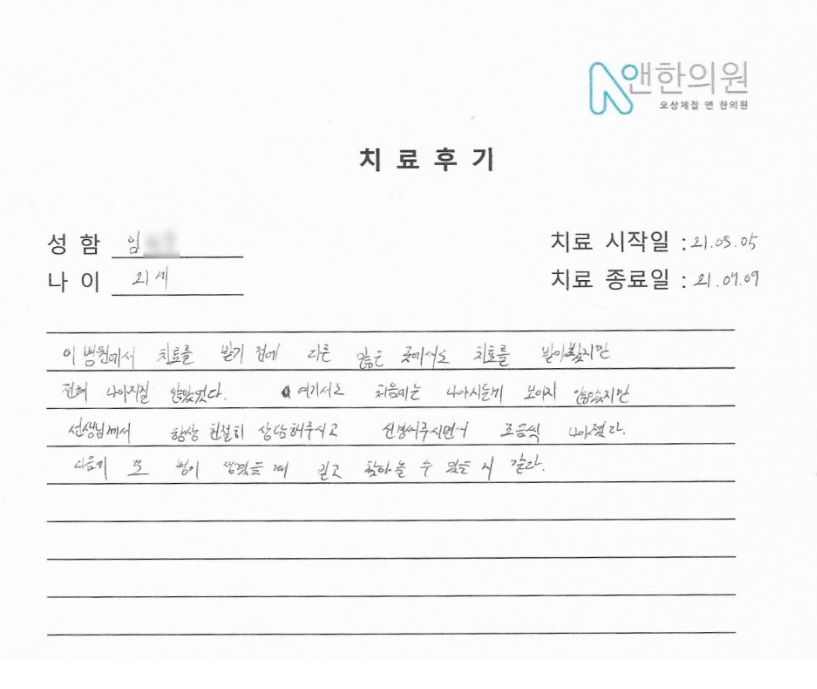 앤한의원
오상체질 앤 한의원
치료후기
성함 임
치료 시작일 : 21.05.05
나이 21세
치료 종료일 : 21.07.09
이 병원에서 치료를 받기 전에 다른 많은 곳에서도 치료를 받아봤지만
전혀 나아지질 않았었다. 여기서도 처음에는 나아지는게 보이지 않았지만
선생님께서 항상 친절히 상담해주시고 신경써주시면서 조금씩 나아졌다.
다음에 또 병이 생겼을 때 믿고 찾아올 수 있을 거 같다.